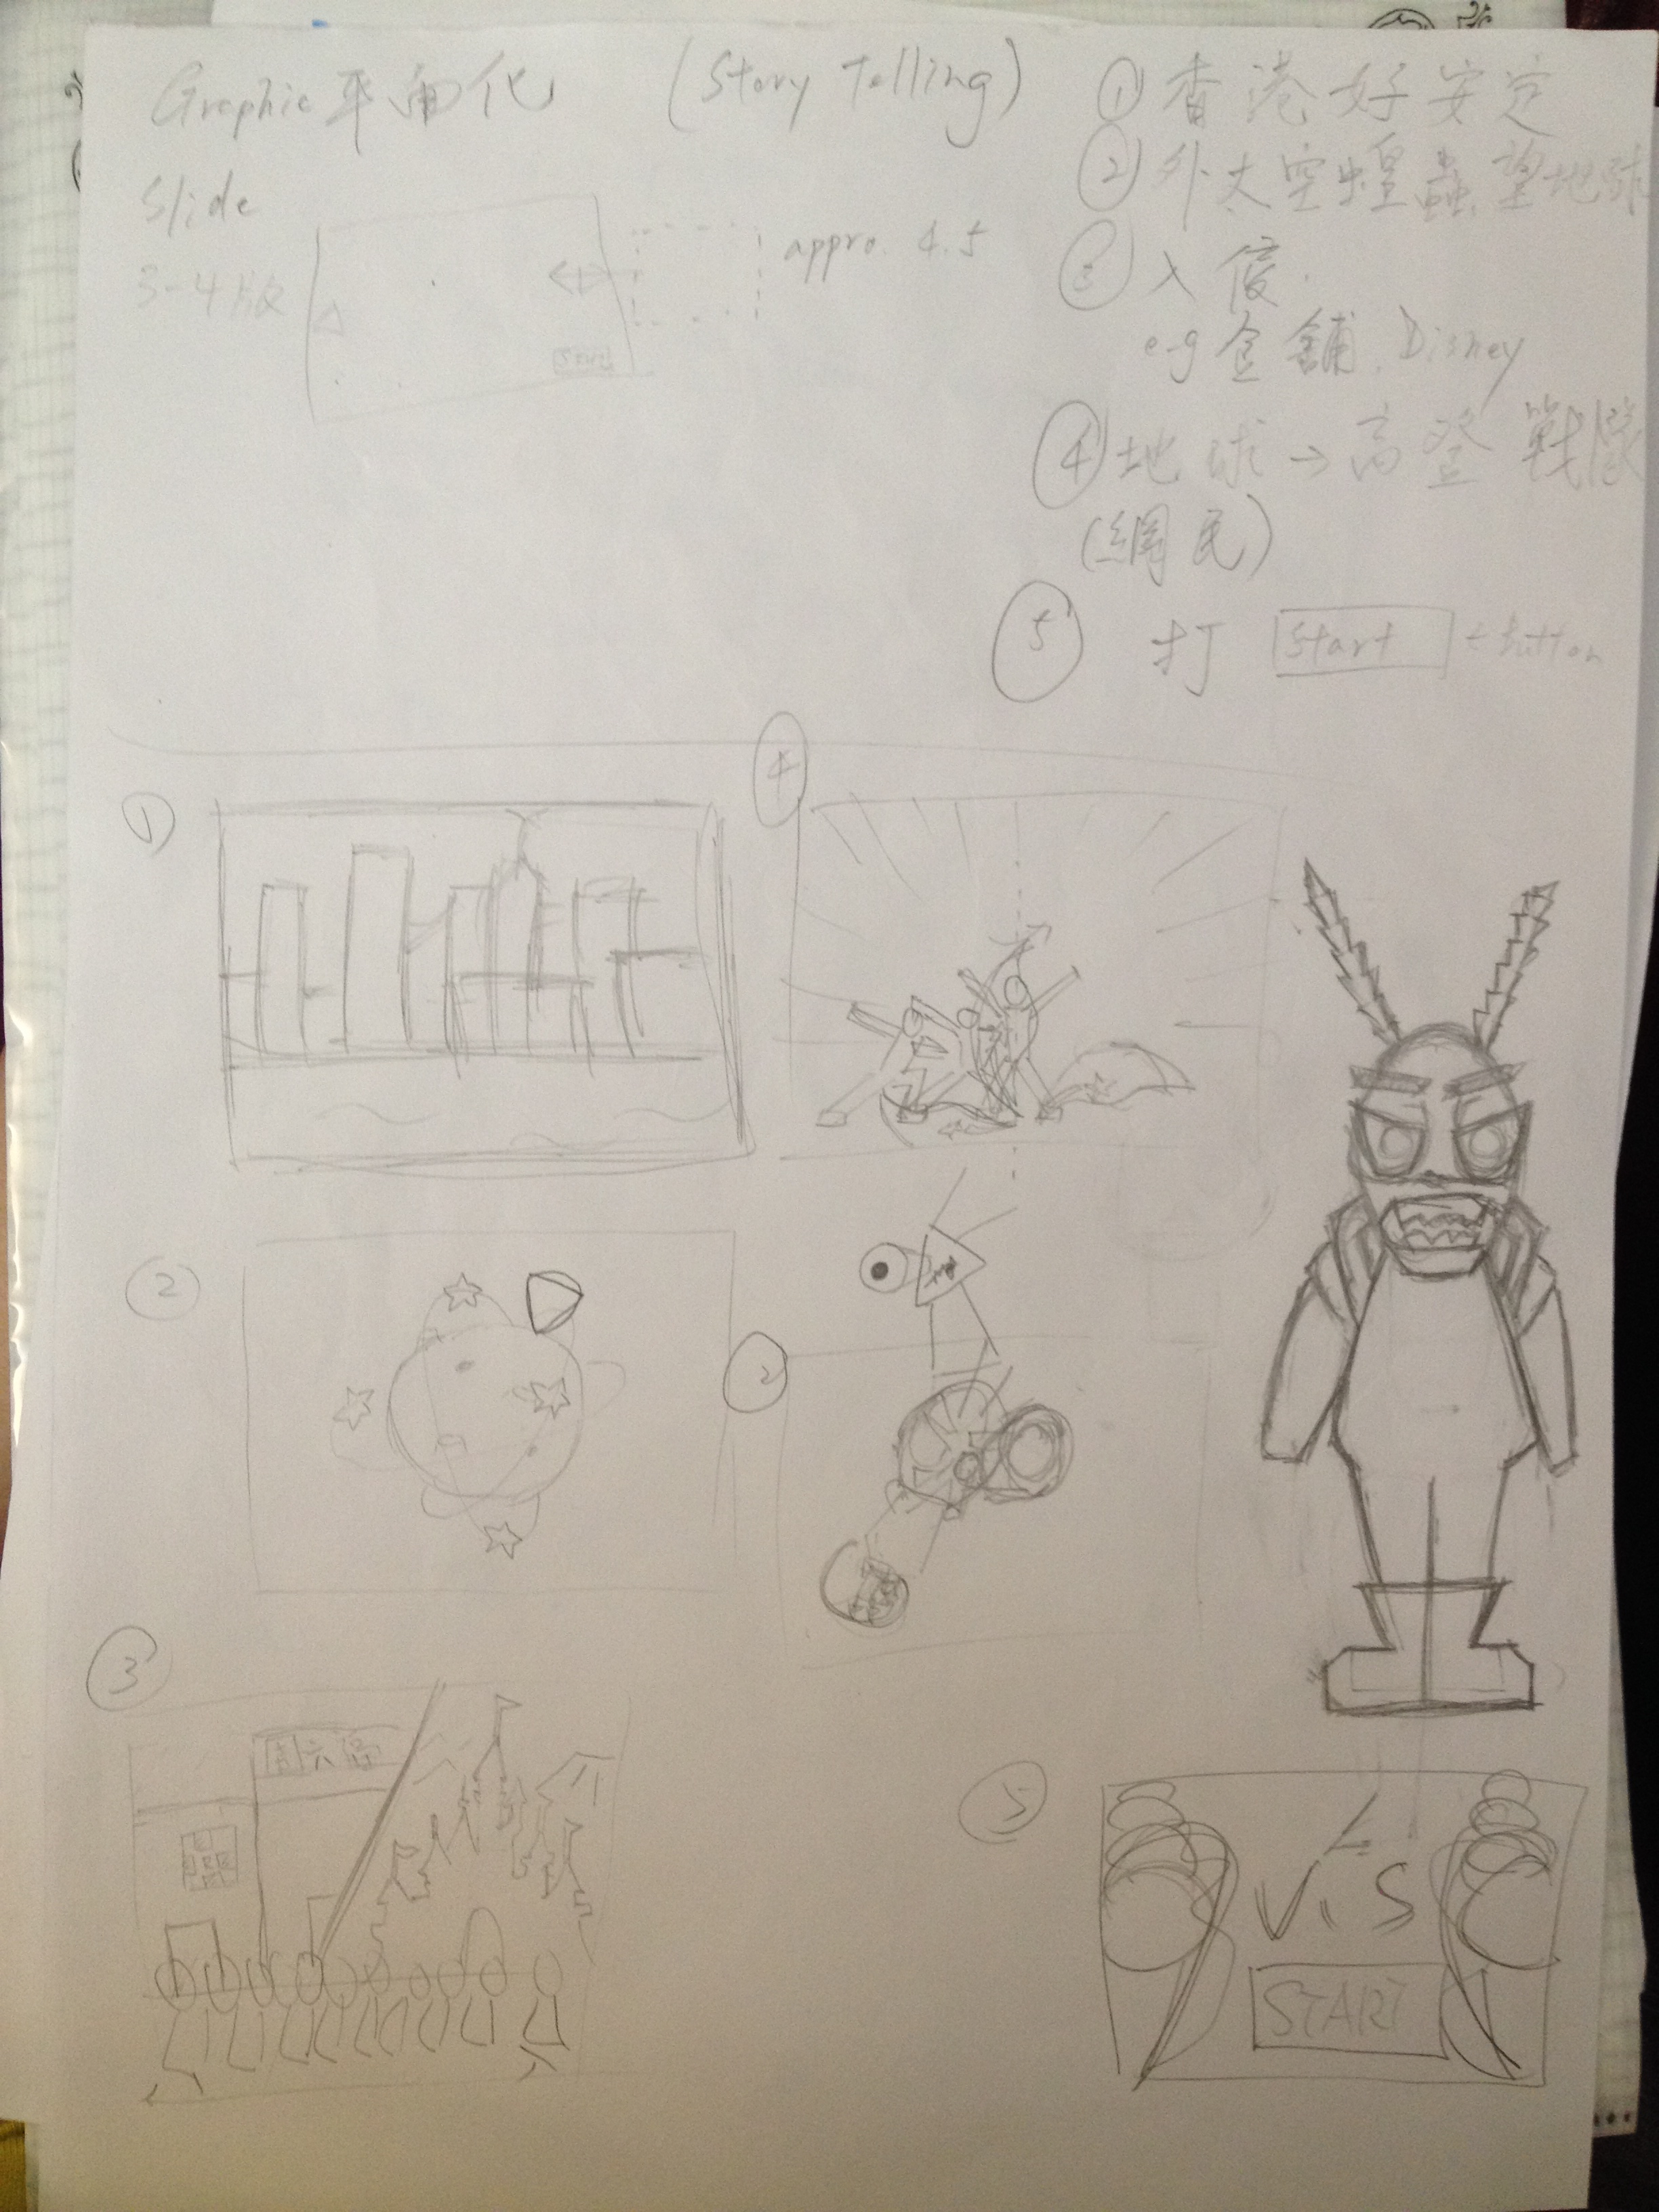 Graphic 平面化 (Story Telling)
Slide
3-4版
appro. 4.5
Start
① 香港好安定
② 外太空蝗蟲望地球
③ 入侵.
e.g 金鋪, Disney
④ 地球→高登戰隊
(網民)
⑤ 打 Start ← button
①
④
②
2
③
周六福
5
V.S
START